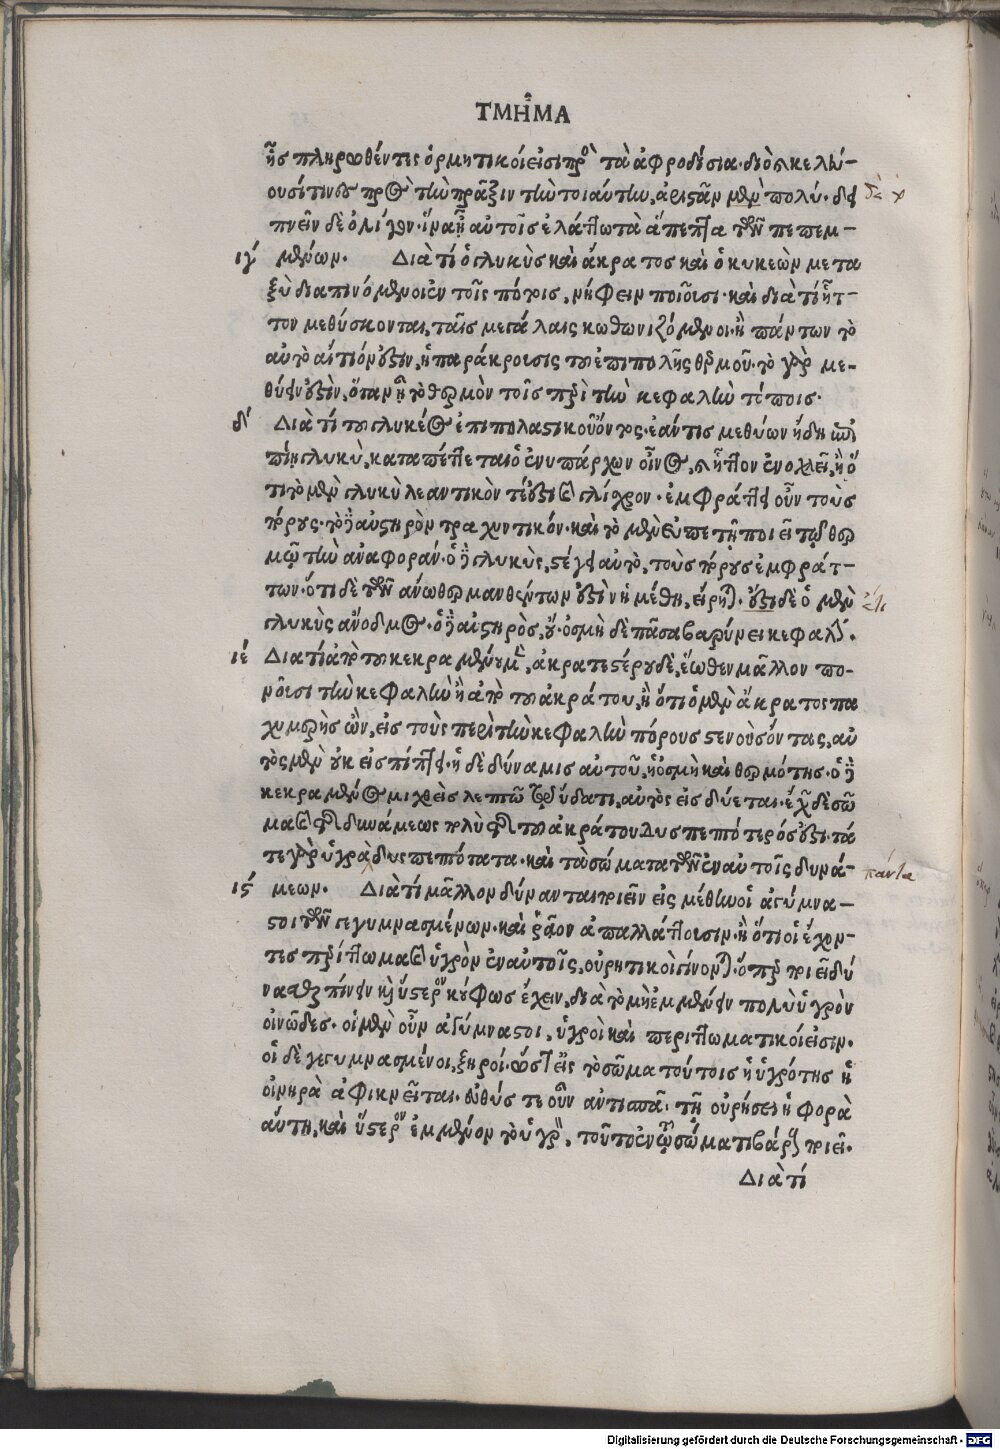 ΤΜΗ͂ΜΑ
ἧς πληρωθέντες ὁρμητικοί εἰσι πρὸς τὰ ἀφροδίσια. διὸ κελεύ-
ουσί τινες πρὸς τὴν πρᾶξιν τὴν τοιαύτην, ἀριστᾶν μὲν πολύ. δει
δὲ
πνεῖν δὲ ὀλίγον. ἵνα ᾖ αὐτοῖς ἐλάττω τὰ ἄπεπτα τῶν πεπεμ-
ιγ΄ μένων. Διὰ τί ὁ γλυκὺς καὶ ἄκρατος καὶ ὁ κυκεὼν μετα
ξὺ διαπινόμενοι ἐν τοῖς πότοις, νήφειν ποιοῦσι. καὶ διὰ τί ἧτ-
τον μεθύσκονται, ταῖς μεγάλαις κωθωνιζόμενοι. ἢ πάντων τὸ
αὐτὸ αἴτιόν ἐστιν, ἡ παράκρουσις τοῦ ἐπιπολῆς θερμοῦ. τὸ γὰρ με-
θύειν ἐστὶν, ὅταν ᾖ τὸ θερμὸν τοῖς περὶ τὴν κεφαλὴν τόποις.
δι΄ Διὰ τί τοῦ γλυκέος ἐπιπολαστικοῦ ὄντος. ἐάν τις μεθύων ἤδη
πίῃ γλυκὺ, καταπέττεται ὁ ἐνυπάρχων οἶνος, ἧττον ἐνοχλεῖ, ἢ ὅ
τι τὸ μὲν γλυκὺ λεαντικόν τέ ἐστι καὶ γλίχρον. ἐμφράττει οὖν τοὺς
πόρους. τὸ δὲ αὐστηρὸν τραχυντικόν. καὶ τὸ μὲν εὐπετῆ ποιεῖ τῷ θερ
μῷ τὴν ἀναφοράν. ὁ δὲ γλυκὺς, στέγει αὐτὸ, τοὺς πόρους ἐμφράτ-
των. ὅτι δὲ τῶν ἄνω θερμανθέντων ἐστὶν ἡ μέθη, εἴρηται. ἔστι δὲ ὁ μὲν
ἔτι
γλυκὺς ἄνοδμος. ὁ δὲ αὐστηρὸς, οὔ. ὀσμὴ δὲ πᾶσα βαρύνει κεφαλήν.
ιέ Διὰ τί ἀπὸ τοῦ κεκραμένου μὲν, ἀκρατεστέρου δὲ, ἕωθεν μᾶλλον πο-
νοῦσι τὴν κεφαλὴν ἢ ἀπὸ τοῦ ἀκράτου, ἢ ὅτι ὁ μὲν ἄκρατος πα
χυμερὴς ὢν, εἰς τοὺς περὶ τὴν κεφαλὴν πόρους στενοὺς ὄντας, αὐ
τὸς μὲν οὐκ εἰσπίπτει. ἡ δὲ δύναμις αὐτοῦ, ἡ ὀσμὴ καὶ θερμότης. ὁ δὲ
κεκραμένος μιχθεὶς λεπτῷ τῷ ὕδατι, αὐτὸς εἰσδύεται. ἔχων δὲ σῶ
μα καὶ τῆς δυνάμεως πολὺ τῆς τοῦ ἀκράτου. δυσπεπτότερός ἐστι. τά
τε γὰρ ὑγρὰ δυσπεπτότατα. καὶ τὰ σώματα τῶν ἐν αὐτοῖς δυνά-
πάντα
ις΄ μεων. Διὰ τί μᾶλλον δύνανται πιεῖν εἰς μέθην οἱ ἀγύμνα-
στοι τῶν γεγυμνασμένων. καὶ ῥᾷον ἀπαλλάττουσιν. ἢ ὅτι οἱ ἔχον-
τες περίττωμα καὶ ὑγρὸν ἐν αὐτοῖς, οὐρητικοὶ γίνονται. ὅπερ πιεῖν δύ
νασθαι πίνειν καὶ ὕστερον κούφως ἔχειν, διὰ τὸ μὴ ἐμμένειν πολὺ ὑγρὸν
οἰνῶδες. οἱ μὲν οὖν ἀγύμναστοι, ὑγροὶ καὶ περιττωματικοί εἰσιν.
οἱ δὲ γεγυμνασμένοι, ξηροί. ὥστε εἰς τὸ σῶμα τούτοις ἡ ὑγρότης ἡ
οἰνηρὰ ἀφικνεῖται. εὐθύς τε οὖν ἀντισπᾷ τῇ οὐρήσει ἡ φορὰ
αὕτη, καὶ ὕστερον ἐμμένον τὸ ὑγρὸν, τοῦτο ἐν τῷ σώματι βάρος ποιεῖ.
Διὰ τί
Digitalisierung gefördert durch die Deutsche Forschungsgemeinschaft - DFG